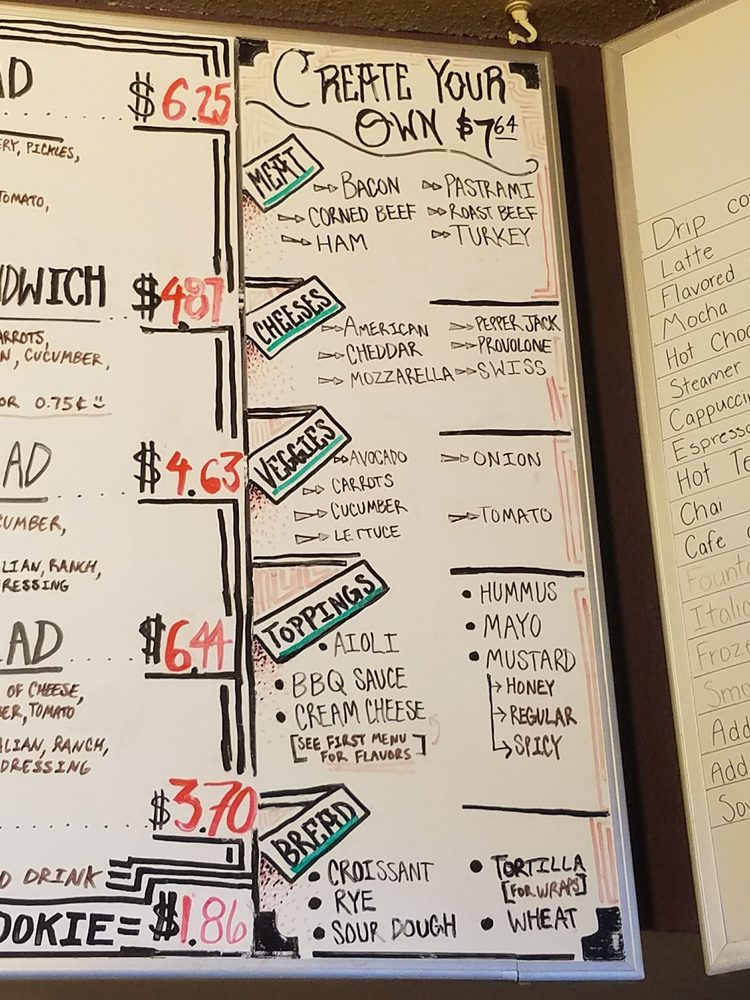 $6.25
PICKLES,
TOMATO,
$4.87
CARROTS,
CUCUMBER,
OR 0.75¢
$4.63
CUCUMBER,
RANCH,
DRESSING
$6.44
OF CHEESE,
TOMATO
RANCH,
DRESSING
$3.70
DRINK
= $1.86
CREATE YOUR
OWN $7.64
MEAT
BACON
CORNED BEEF
HAM
PASTRAMI
ROAST BEEF
TURKEY
CHEESES
AMERICAN
CHEDDAR
MOZZARELLA
PEPPER JACK
PROVOLONE
SWISS
VEGGIES
AVOCADO
CARROTS
CUCUMBER
LETTUCE
ONION
TOMATO
TOPPINGS
AIOLI
BBQ SAUCE
CREAM CHEESE
[SEE FIRST MENU
FOR FLAVORS]
HUMMUS
MAYO
MUSTARD
HONEY
REGULAR
SPICY
BREAD
CROISSANT
RYE
SOUR DOUGH
TORTILLA
[FOR WRAPS]
WHEAT
Drip
Latte
Flavored
Mocha
Hot
Steamer
Espresso
Hot
Chai
Cafe